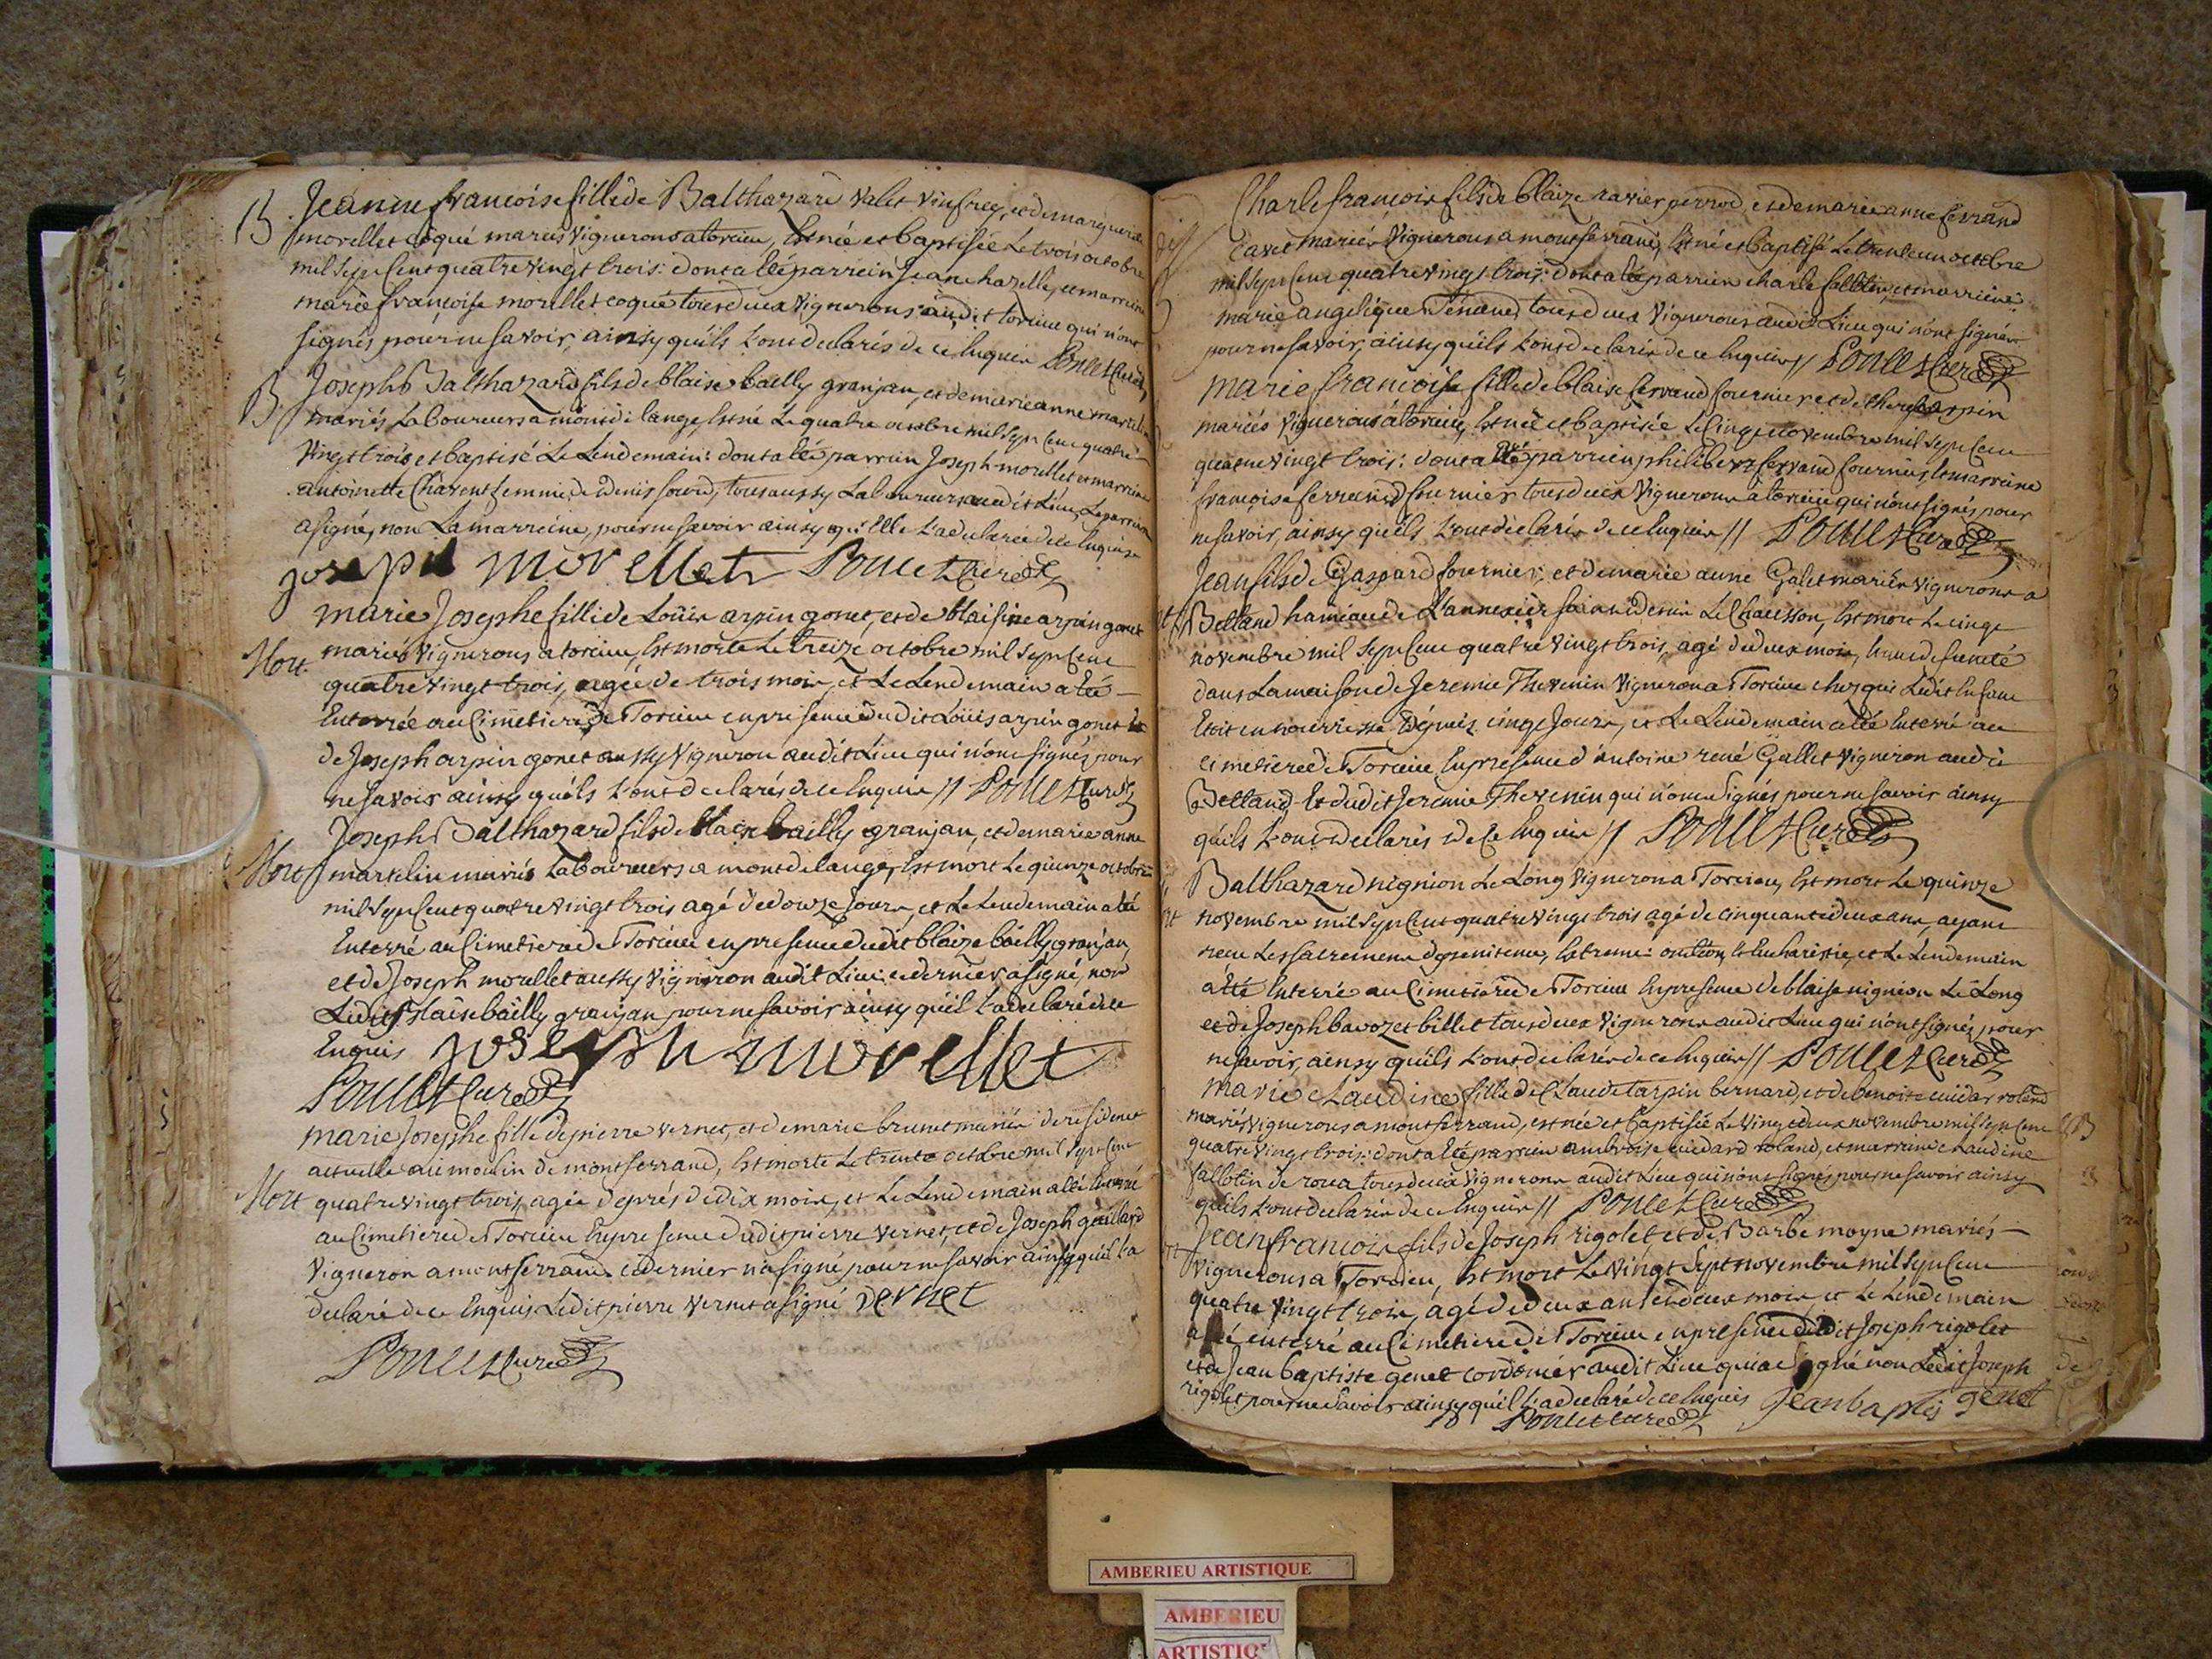 B Jeanne françoise fille de Balthazard Valet Vinfrey, et de marguerite
morellet coqué mariés Vignerons a torcieu, Est née et Baptisée Le trois octobre
mil Sept Cent quatre vingt trois: dont a Eté parrein Jean chazelle, et marreine
marie françoise morellet coqué tous deux Vignerons audit torcieu qui n'ont
signés pour ne savoir, ainsy qu'ils L'ont declarés de ce Enquis Poncet Curé
B Joseph Balthazard fils de blaise bailly granjan, et de marie anne martelin
mariés Laboureurs a mont de lange, Est né Le quatre octobre mil Sept Cent quatre
Vingt trois et baptisé Le Lendemain: dont a Eté parrein Joseph morellet et marreine
antoinette Charvent femme de denis fourd, tous aussy Laboureurs audit Lieu, Le parrein
a signé, non La marreine, pour ne savoir ainsy qu'Elle L'a declarée de ce Enquise
joseph morellet Poncet Curé
marie Josephe fille de Loüis arpin gonet, et de blaisine arpin gonet
Mort mariés Vignerons a torcieu, Est morte Le treize octobre mil Sept Cent
quatre Vingt trois, agée de trois mois, et Le Lendemain a Eté
Enterrée au Cimetiere de Torcieu en presence dudit Loüis arpin gonet et
de Joseph arpin gonet aussy Vigneron audit Lieu qui n'ont signés, pour
ne savoir ainsy qu'ils L'ont declarés de ce Enquis // Poncet Curé
Joseph Balthazard fils de blaise bailly granjan, et de marie anne
Mort martelin mariés Laboureurs a mont de lange, Est mort Le quinze octobre
mil Sept Cent quatre vingt trois agé de douze Jours, et Le Lendemain a Eté
Enterré au Cimetiere de Torcieu en presence dudit blaize bailly granjan,
et de Joseph morellet aussy Vigneron audit Lieu: ce dernier a signé, non
Ledit blaise bailly granjan pour ne savoir ainsy qu'il L'a declaré de ce
Enquis joseph morellet
Poncet Curé
marie Josephe fille de pierre vernet, et de marie brunet mariés de residence
actuelle au moulin de montferrand, Est morte Le trente octobre mil Sept Cent
Mort quatre vingt trois, agée de prés de dix mois, et Le Lendemain a Eté Enterré
au Cimetiere de Torcieu En presence dudit pierre vernet, et de Joseph gaillard
Vigneron a montferrand ce dernier n'a signé pour ne savoir ainsy qu'il L'a
declaré de ce Enquis, Ledit pierre vernet a signé vernet
Poncet Curé
Charle françois fils de blaize ravier perrod, et de marie anne ferrand
cavet mariés Vignerons a montferrand, Est né et Baptisé Le trente un octobre
mil Sept Cent quatre vingt trois: dont a Eté parrein charle falbotin, et marreine
marie angelique tenand tous deux Vignerons audit Lieu qui n'ont signés
pour ne savoir, ainsy qu'ils L'ont declarés de ce Enquis // Poncet Curé
marie françoise fille de blaise ferrand fournier et de therese arpin
mariés Vignerons a torcieu, Est née et baptisée Le Cinq novembre mil Sept Cent
quatre vingt trois: dont a Eté parrein philibert ferrand fournier, Et marreine
françoise ferrand fournier tous deux Vignerons a torcieu qui n'ont signés pour
ne savoir, ainsy qu'ils L'ont declarés de ce Enquis // Poncet Curé
Jean fils de Gaspard fournier, et de marie anne Galet mariés Vignerons a
Bettand hameau de L'annexe de saint denis Le Chausson, Est mort Le cinq
novembre mil Sept Cent quatre vingt trois, agé de deux mois,
dans La maison de Jeremie Thevenin Vigneron a Torcieu chez qui Ledit Enfant
Etoit en nourrisse depuis cinq Jours, et Le Lendemain a Eté Enterré au
cimetiere de Torcieu, En presence d'antoine rené Gallet Vigneron audit
Bettand Et dudit Jeremie Thevenin qui n'ont signés pour ne savoir ainsy
qu'ils L'ont declarés de Ce Enquis // Poncet Curé
Balthazard nignion Le Long Vigneron a Torcieu, Est mort Le quinze
novembre mil Sept Cent quatre vingt trois agé de cinquante deux ans, ayant
recu Les sacremens de penitence, Extreme onction, Et Eucharistie, et Le Lendemain
a Eté Enterré au Cimetiere de Torcieu En presence de blaise nignion Le Long
et de Joseph bavozet billet tous deux Vignerons audit Lieu qui n'ont signés, pour
ne savoir, ainsy qu'ils L'ont declarés de ce Enquis // Poncet Curé
marie claudine fille de Claude tarpin bernard, et de benoite cuidar roland
mariés Vignerons a montferrand, est née et baptisée Le Vingt deux novembre mil Sept Cent B
quatre Vingt trois: dont a Eté parrein ambroise cuidard roland, et marreine claudine
fallotin de roua tous deux Vignerons audit Lieu qui n'ont signés pour ne savoir ainsy
qu'ils L'ont declarés de ce Enquis // Poncet Curé
Jean françois fils de Joseph rigolet et de Barbe moyne mariés
Vignerons a Torcieu, Est mort Le Vingt Sept novembre mil Sept Cent
quatre Vingt trois, agé de deux ans et deux mois, et Le Lendemain
a Eté enterré au Cimetiere de Torcieu en presence dudit Joseph rigolet
et de Jean baptiste genet cordonier audit Lieu qui a signé non Ledit Joseph
rigolet pour ne savoir ainsy qu'il L'a declaré de ce Enquis Jean baptis genet
Poncet curé
AMBERIEU ARTISTIQUE
AMBERIEU
ARTISTIQ